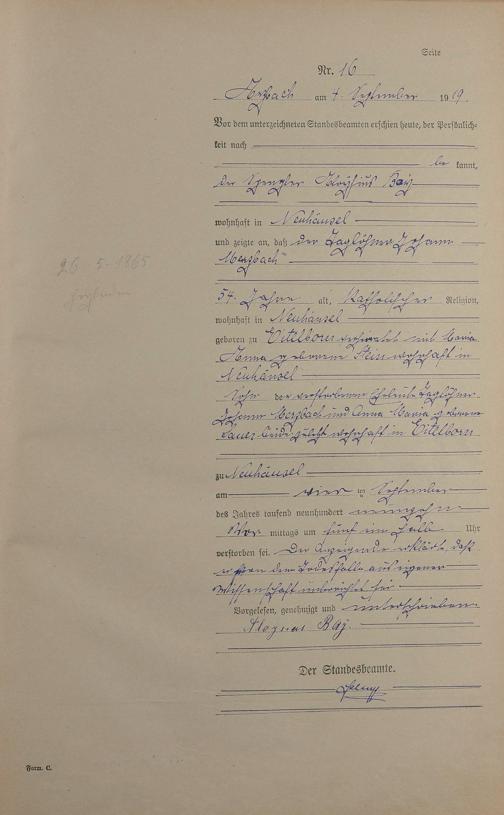 Seite
Nr. 16
Arzbach am 4 September 1919.
Vor dem unterzeichneten Standesbeamten erschien heute, der Persönlich-
keit nach
be kannt,
der Spengler Aloysius Bay
wohnhaft in Neuhäusel
und zeigte an, daß der Taglöhner Johann
Merzbach
26 5-1865
54. Jahre alt, Katholischer Religion,
wohnhaft in Neuhäusel
geboren zu Eitelborn verheiratet mit Maria
Anna geborene Stein wohnhaft in
Neuhäusel
Sohn der verstorbenen Eheleute Taglöhner
Johann Merzbach und Anna Maria geborene
beide zuletzt wohnhaft in Eitelborn
zu Neuhäusel
am vier ten September
des Jahres tausend neunhundert neunzehn
Vor mittags um fünf ein halb Uhr
verstorben sei. Der Anzeigende erklärte, daß
er von dem Todesfalle aus eigener
Wissenschaft unterrichtet sei.
Vorgelesen, genehmigt und unterschrieben
Aloysius Bay.
Der Standesbeamte.
Form. C.